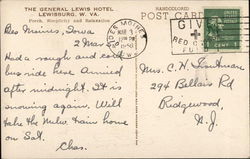 THE GENERAL LEWIS HOTEL
LEWISBURG, W. VA.
Rest, Simplicity and Relaxation
HANDCOLORED
POST CARD
DES MOINES
MAR 3
1950
GIVE
RED CROSS
FUND
Des Moines, Iowa
2 Mar
Had a rough and cold
bus ride here. Arrived
after midnight. It is
snowing again. Will
take the Milw. train home
on Sat.
Chas.
Mrs. C. H. Trautman
294 Bellair Rd
Ridgewood,
N. J.